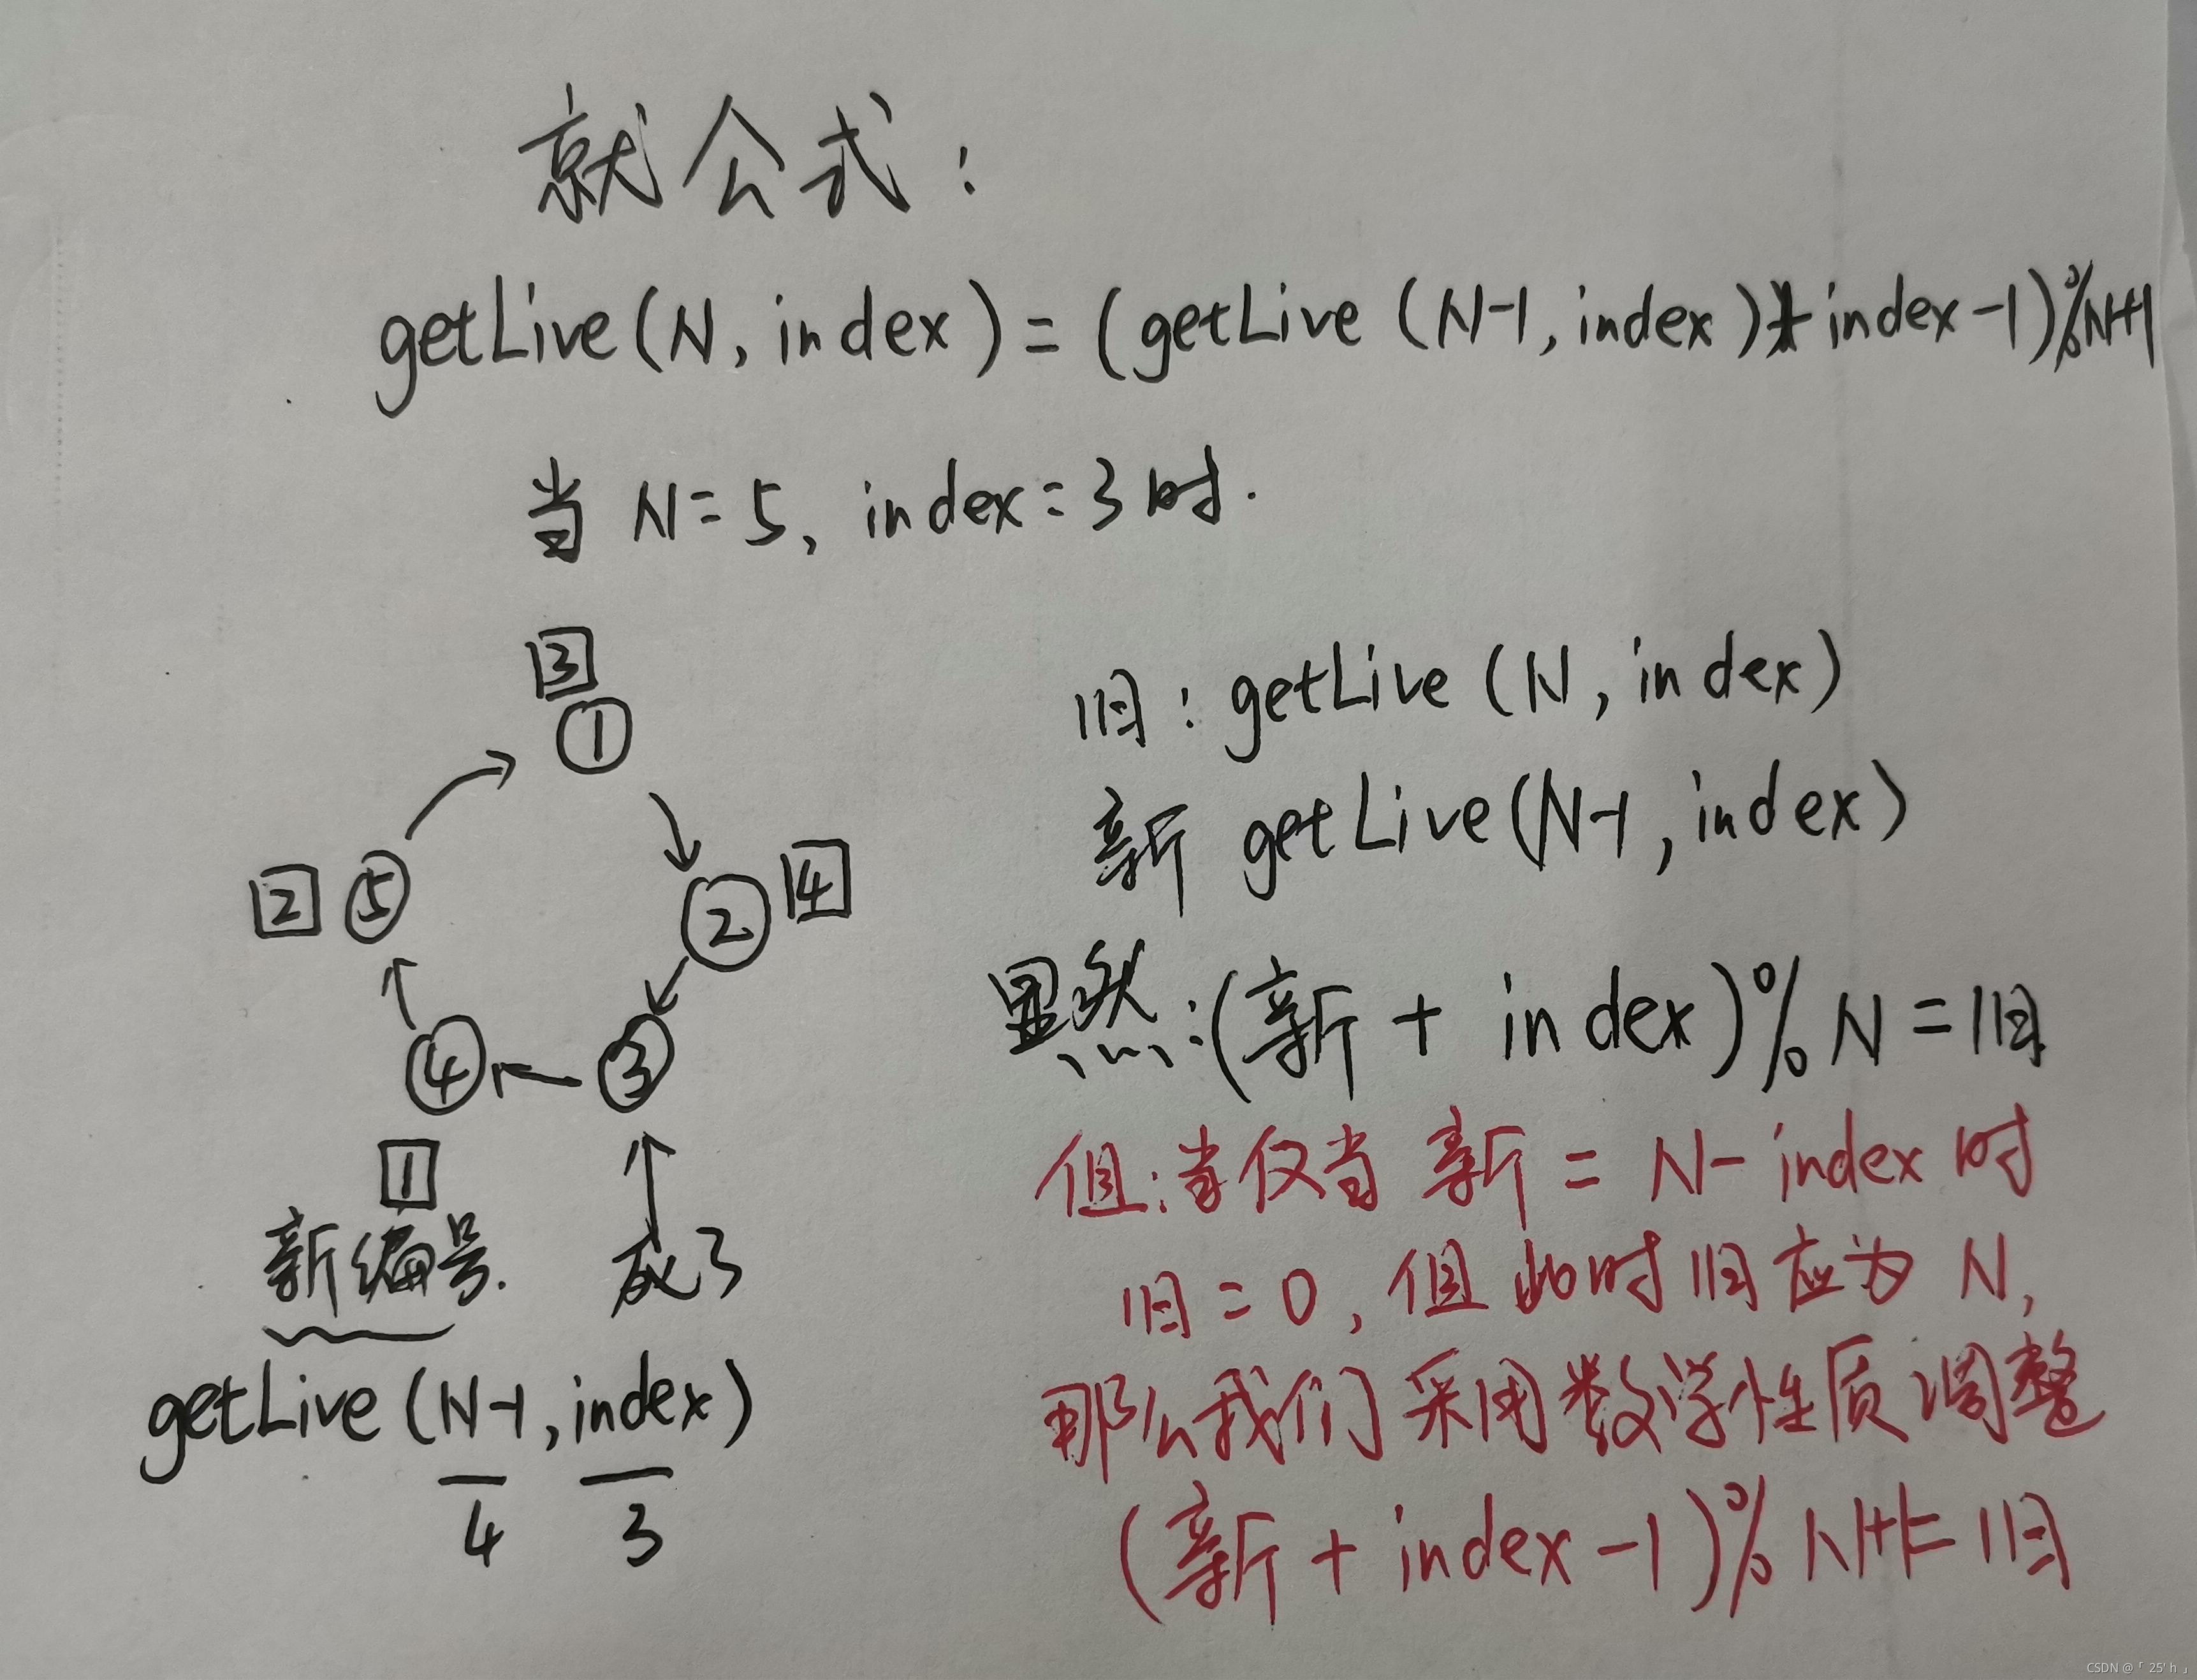 就公式:
getLive(N, index) = (getLive (N-1, index)+index-1)%N+1
当 N=5, index=3时.
3
1
2 5
2 4
4
3
1
新编号.
死了
getLive (N-1, index)
4 3
旧: getLive (N, index)
新 getLive(N-1, index)
显然:(新 + index)%N=旧
但:当仅当 新 = N-index时
旧=0, 但此时旧应为 N,
那么我们采用数学性质调整
(新+index-1)%N+1=旧
CSDN @「 25' h 」